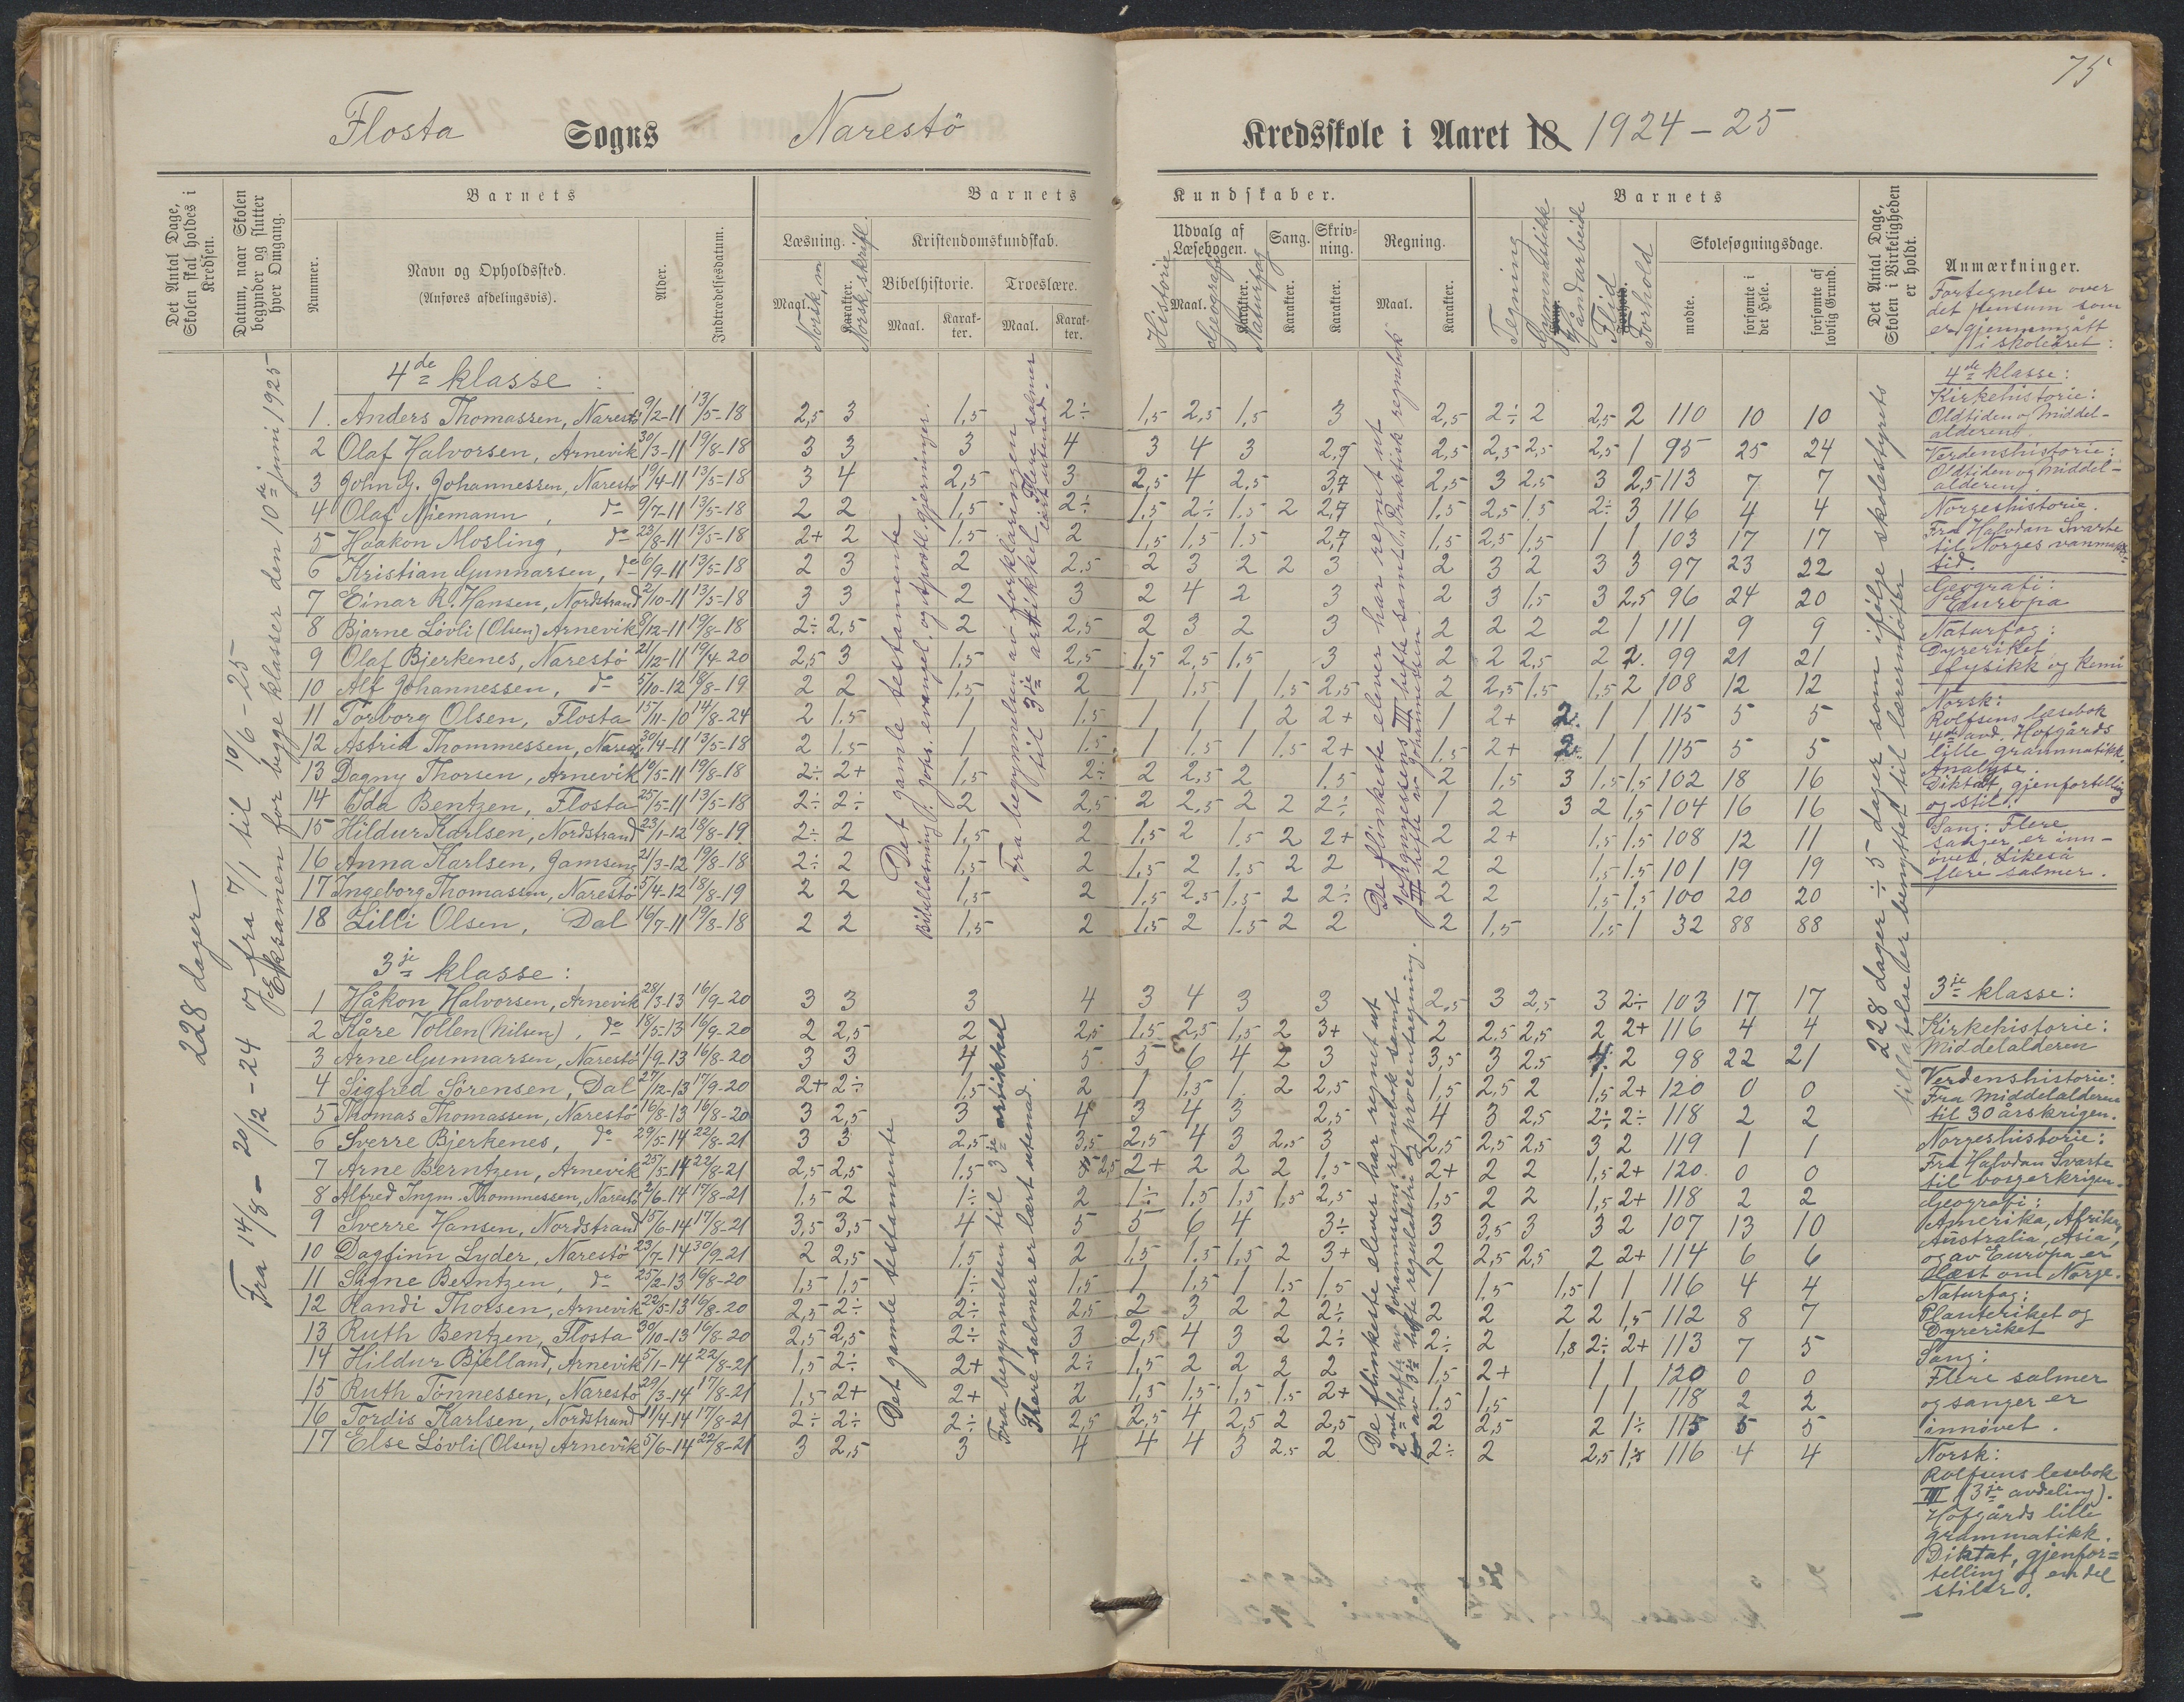 75
Flosta Sogns Narestö Kredsskole i Aaret 18 1924-25
Det Antal Dage, Skolen skal holdes i Kredsen.
Datum, naar Skolen begynder og slutter hver Omgang.
Barnets
Nummer.
Navn og Opholdssted.
(Anføres afdelingsvis).
Alder.
Indtrædelsesdatum.
Barnets Kundskaber.
Læsning.
Maal.
Norsk, m
Karakter.
Norsk, skriftl.
Kristendomskundskab.
Bibelhistorie.
Maal.
Karakter.
Troeslære.
Maal.
Karakter.
Udvalg af Læsebogen.
Historie
Maal.
Geografi
Karakter.
Naturfag
Sang.
Karakter.
Skrivning.
Karakter.
Regning.
Maal.
Karakter.
Barnets
Tegning
Gymnastikk
Håndarbeide
Flid
Forhold
Skolesøgningsdage.
mødte.
forsømte i det Hele.
forsømte af lovlig Grund.
Det Antal Dage, Skolen i Virkeligheden er holdt.
Anmærkninger.
Fortegnelse over
det pensum som
er gjennemgått
i skoleåret:
228 dager
Fra 14/8 - 20/12 - 24 og fra 7/1 til 10/6 - 25
Eksamen for begge klasser den 10de juni 1925
4de klasse:
1. Anders Thomassen, Narestö 9/2-11 13/5-18 2,5 3 1,5 2÷ 1,5 2,5 1,5 3 2,5 2÷ 2 2,5 2 110 10 10
2 Olaf Halvorsen, Arnevik 30/3-11 19/8-18 3 3 3 4 3 4 3 2,7 2,5 2,5 2,5 2,5 1 95 25 24
3 John G. Johannessen, Narestö 19/4-11 13/5-18 3 4 2,5 3 2,5 4 2,5 3,7 2,5 3 2,5 3 2,5 113 7 7
4 Olaf Niemann, do 9/7-11 13/5-18 2 2 1,5 2÷ 1,5 2÷ 1,5 2 2,7 1,5 2,5 1,5 2÷ 3 116 4 4
5 Haakon Mosling, do 23/8-11 13/5-18 2+ 2 1,5 2 1,5 1,5 1,5 2,7 1,5 2,5 1,5 1 1 103 17 17
6 Kristian Gunnarsen, do 6/9-11 13/5-18 2 3 2 2,5 2 3 2 2 3 2 3 2 3 3 97 23 22
7 Einar R. Hansen, Nordstrand 2/10-11 13/5-18 3 3 2 3 2 4 2 3 2 3 1,5 3 2,5 96 24 20
8 Bjarne Lövli (Olsen) Arnevik 8/12-11 19/8-18 2÷ 2,5 2 2,5 2 3 2 3 2 2 2 2 1 111 9 9
9 Olaf Bjerkenes, Narestö 21/12-11 19/4-20 2,5 3 1,5 2,5 1,5 2,5 1,5 3 2 2 2,5 2 2. 99 21 21
10 Alf Johannessen, do 5/10-12 18/8-19 2 2 1,5 2 1 1,5 1 1,5 2,5 2 2,5 1,5 1,5 2 108 12 12
11 Torborg Olsen, Flosta 15/11-10 14/8-24 2 1,5 1 1,5 1 1 1 2 2+ 1 2+ 2. 1 1 115 5 5
12 Astrid Thommessen, Narestö 30/4-11 13/5-18 2 1,5 1 1,5 1 1,5 1 1,5 2+ 1,5 2+ 2. 1 1 115 5 5
13 Dagny Thorsen, Arnevik 10/5-11 19/8-18 2÷ 2+ 1,5 2÷ 2 2,5 2 1,5 2 1,5 3 1,5 1,5 102 18 16
14 Ida Bentzen, Flosta 25/5-11 13/5-18 2÷ 2÷ 2 2,5 2 2,5 2 2 2÷ 1 2 3 2 1,5 104 16 16
15 Hildur Karlsen, Nordstrand 23/1-12 18/8-19 2÷ 2 1,5 2 1,5 2 1,5 2 2+ 2 2+ 1,5 1,5 108 12 11
16 Anna Karlsen, 21/3-12 19/8-18 2÷ 2 1,5 2 1,5 2 1,5 2 2 2 2 1,5 1,5 101 19 19
17 Ingeborg Thomassen, Narestö 5/4-12 18/8-19 2 2 1,5 2 1,5 2,5 1,5 2 2÷ 2 2 1,5 1,5 100 20 20
18 Lilli Olsen, Dal 16/7-11 19/8-18 2 2 1,5 2 1,5 2 1,5 2 2 2 1,5 1,5 1 32 88 88
Det gamle testamente
Bibellæsning: Johs. evangel. og Apostl. gjerninger.
Fra begynnelsen av forklaringen
til 3je artikkel. Flere salmer
lært utenad.
De flinkeste elever har regnet ut
Johannessens III hefte samt "Praktisk regnebok"
III hefte av Johannessen
3je klasse:
1 Håkon Halvorsen, Arnevik 28/3-13 16/9-20 3 3 3 4 3 4 3 3 2,5 3 2,5 3 2÷ 103 17 17
2 Kåre Vollen (Nilsen), do 18/5-13 16/9-20 2 2,5 2 2,5 1,5 2,5 1,5 2 3+ 2 2,5 2,5 2 2+ 116 4 4
3 Arne Gunnarsen, Narestö 1/9-13 16/8-20 3 3 4 5 5 6 4 2 3 3,5 3 2,5 4 2 98 22 21
4 Sigfred Sörensen, Dal 27/12-13 17/9-20 2+ 2÷ 1,5 2 1 1,5 1 2 2,5 1,5 2,5 2 1,5 2+ 120 0 0
5 Thomas Thomassen, Narestö 16/8-13 16/8-20 3 2,5 3 4 3 4 3 2,5 4 3 2,5 2÷ 2÷ 118 2 2
6 Sverre Bjerkenes, do 29/5-14 22/8-21 3 3 2,5 3,5 2,5 4 3 2,5 3 2,5 2,5 2,5 3 2 119 1 1
7 Arne Berntzen, Arnevik 25/5-14 22/8-21 2,5 2,5 1,5 2,5 2+ 2 2 2 1,5 2+ 2 2 1,5 2+ 120 0 0
8 Alfred Ingm. Thommessen, Narestö 2/6-14 17/8-21 1,5 2 1÷ 2 1÷ 1,5 1,5 1,5 2,5 1,5 2 2 1,5 2+ 118 2 2
9 Sverre Hansen, Nordstrand 15/6-14 17/8-21 3,5 3,5 4 5 5 6 4 3÷ 3 3,5 3 3 2 107 13 10
10 Dagfinn Lyder, Narestö 23/7-14 30/9-21 2 2,5 1,5 2 1,5 1,5 1,5 2 3+ 2 2,5 2,5 2 2+ 114 6 6
11 Signe Berntzen, do 25/2-13 16/8-20 1,5 1,5 1÷ 1,5 1 1,5 1 1,5 1,5 1 1,5 1,5 1 1 116 4 4
12 Randi Thorsen, Arnevik 22/5-13 16/8-20 2,5 2÷ 2÷ 2,5 2 3 2 2 2÷ 2 2 2 2 1,5 112 8 7
13 Ruth Bentzen, Flosta 30/10-13 16/8-20 2,5 2,5 2÷ 3 2,5 4 3 2 2÷ 2÷ 2 1,8 2÷ 2+ 113 7 5
14 Hildur Bjelland, Arnevik 5/1-14 22/8-21 1,5 2÷ 2+ 2÷ 1,5 2 2 2 2 1,5 2+ 1 1 120 0 0
15 Ruth Tönnessen, Narestö 29/3-14 17/8-21 1,5 2+ 2+ 2 1,5 1,5 1,5 1,5 2+ 1,5 1,5 1 1 118 2 2
16 Tordis Karlsen, Nordstrand 11/4-14 17/8-21 2÷ 2÷ 2÷ 2,5 2,5 4 2,5 2 2,5 2 2,5 2 1÷ 115 5 5
17 Else Lövli (Olsen) Arnevik 5/6-14 22/8-21 3 2,5 3 4 4 4 3 2,5 2 2÷ 2 2,5 1,5 116 4 4
Det gamle testamente
Fra begynnelsen til 3je artikkel
Flere salmer er lært utenad.
De flinkeste elever har regnet ut
2net hefte av Johannessens regnebok samt
av 3je hefte reguladetri og procentregning.
228 dager ÷ 5 dager som ifølge skolestyrets
tillatelse er benyttet til lærermøter
4de klasse:
Kirkehistorie:
Oldtiden og Middel-
alderen.
Verdenshistorie:
Oldtiden og Middel-
alderen.
Norgeshistorie.
Fra Halvdan Svarte
til Norges vanmakts-
tid.
Geografi:
Europa
Naturfag:
Dyreriket
Fysikk og Kemi
Norsk:
Rolfsens læsebok
4de avd. Hofgårds
lille grammatikk.
Analyse.
Diktat, gjenfortelling
og stil.
Sang: Flere
sanger er inn-
övet, likeså
flere salmer.
3je klasse:
Kirkehistorie:
Middelalderen
Verdenshistorie:
Fra Middelalderen
til 30 årskrigen.
Norgeshistorie:
Fra Halvdan Svarte
til borgerkrigen.
Geografi:
Amerika, Afrika,
Australia, Asia,
og av Europa er
læst om Norge.
Naturfag:
Planteriket og
Dyreriket
Sang:
Flere salmer
og sanger er
innövet.
Norsk:
Rolfsens lesebok
III (3je avdeling).
Hofgårds lille
grammatikk.
Diktat, gjenfor=
telling og en del
stiler.